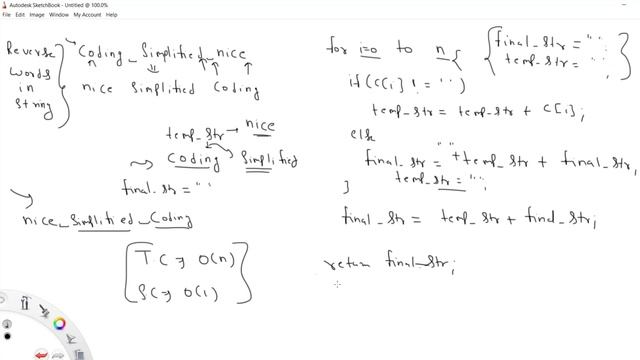 Autodesk SketchBook - Untitled @ 100.0%
File Edit Image Window My Account Help
Reverse
words
in
string
Coding_Simplified_nice
n
nice Simplified Coding
temp_str → nice
Coding Simplified
final_str = " "
nice_Simplified_Coding
TC → O(n)
SC → O(1)
for i=0 to n {
final_str = " ";
temp_str = " ";
if (C[i] != ' ')
temp_str = temp_str + C[i];
else
final_str = " " + temp_str + final_str;
temp_str = " ";
}
final_str = temp_str + final_str;
return final_str;